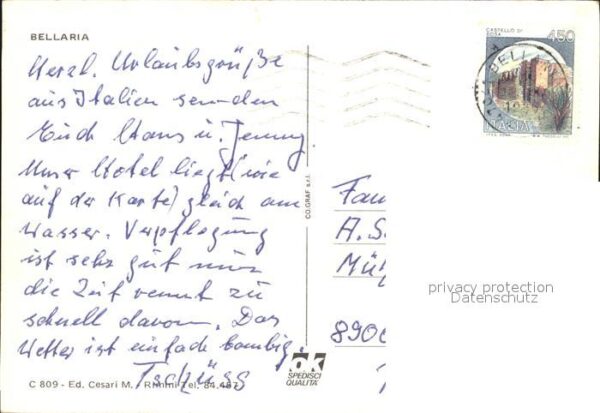 BELLARIA
Herzl. Urlaubsgrüße
aus Italien senden
Euch Hans u. Jenny
Unser Hotel liegt (wie
auf der Karte) gleich am
Wasser. Verpflegung
ist sehr gut nur
die Zeit rennt zu
schnell davon. Das
Wetter ist einfach bombig.
Tschüss
C 809 - Ed. Cesari M. - Rimini Tel. 84.487
CO.GRAF s.r.l.
ok
SPEDISCI
QUALITÀ
CASTELLO DI
450
ITALIA
Fam
A. S
Mü
890
privacy protection
Datenschutz